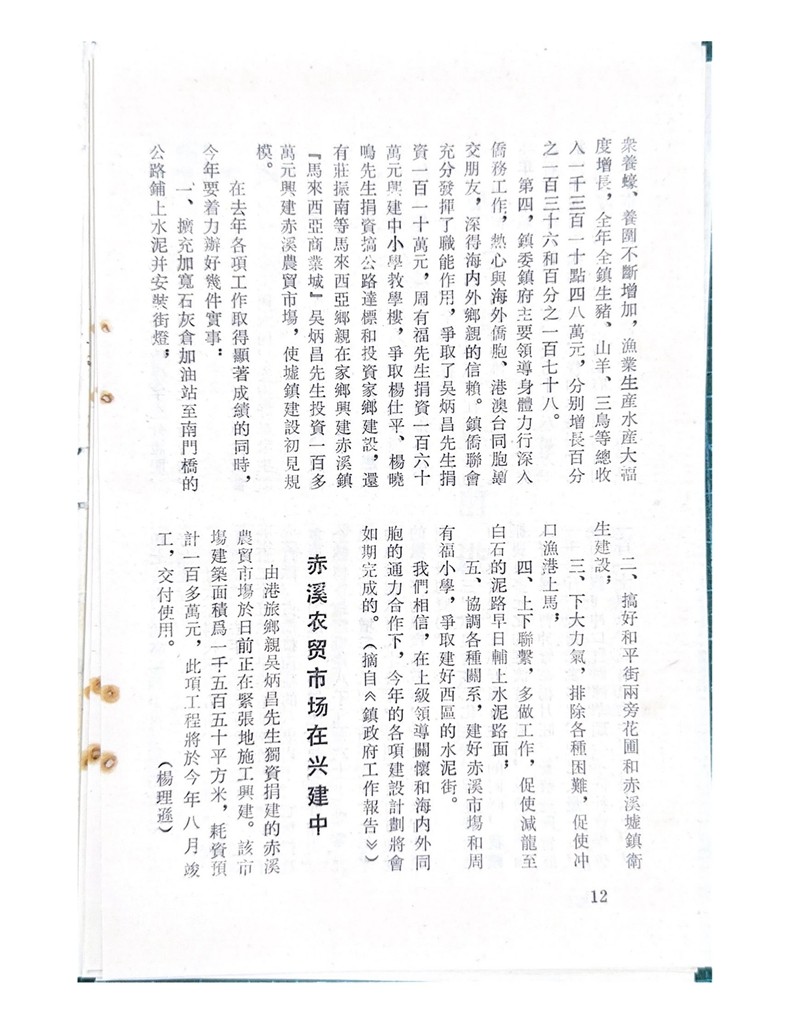 衆養蠔、養圍不斷增加，漁業生産水産大福
度增長，全年全鎮生豬、山羊、三鳥等總收
入一千三百一十點四八萬元，分别增長百分
之一百三十六和百分之一百七十八。
第四，鎮委鎮府主要領導身體力行深入
僑務工作，熱心與海外僑胞、港澳台同胞廣
交朋友，深得海内外鄉親的信賴。鎮僑聯會
充分發揮了職能作用，爭取了吳炳昌先生捐
資一百一十萬元，周有福先生捐資一百六十
萬元興建中小學教學樓，爭取楊仕平、楊曉
鳴先生捐資搞公路達標和投資家鄉建設，還
有莊振南等馬來西亞鄉親在家鄉興建赤溪鎮
『馬來西亞商業城』吳炳昌先生投資一百多
萬元興建赤溪農貿市場，使墟鎮建設初見規
模。
在去年各項工作取得顯著成績的同時，
今年要着力辦好幾件實事：
一、擴充加寬石灰倉加油站至南門橋的
公路鋪上水泥并安裝街燈；
二、搞好和平街兩旁花圃和赤溪墟鎮衛
生建設；
三、下大力氣，排除各種困難，促使冲
口漁港上馬，
四、上下聯繫，多做工作，促使減龍至
白石的泥路早日輔上水泥路面，
五、協調各種關系，建好赤溪市場和周
有福小學，爭取建好西區的水泥街。
我們相信，在上級領導關懷和海内外同
胞的通力合作下，今年的各項建設計劃將會
如期完成的。（摘自《鎮政府工作報告》）
赤溪农贸市场在兴建中
由港旅鄉親吳炳昌先生獨資捐建的赤溪
農貿市場於日前正在緊張地施工興建。該市
場建築面積爲一千五百五十平方米，耗資預
計一百多萬元，此項工程將於今年八月竣
工，交付使用。
（楊理遜）
12